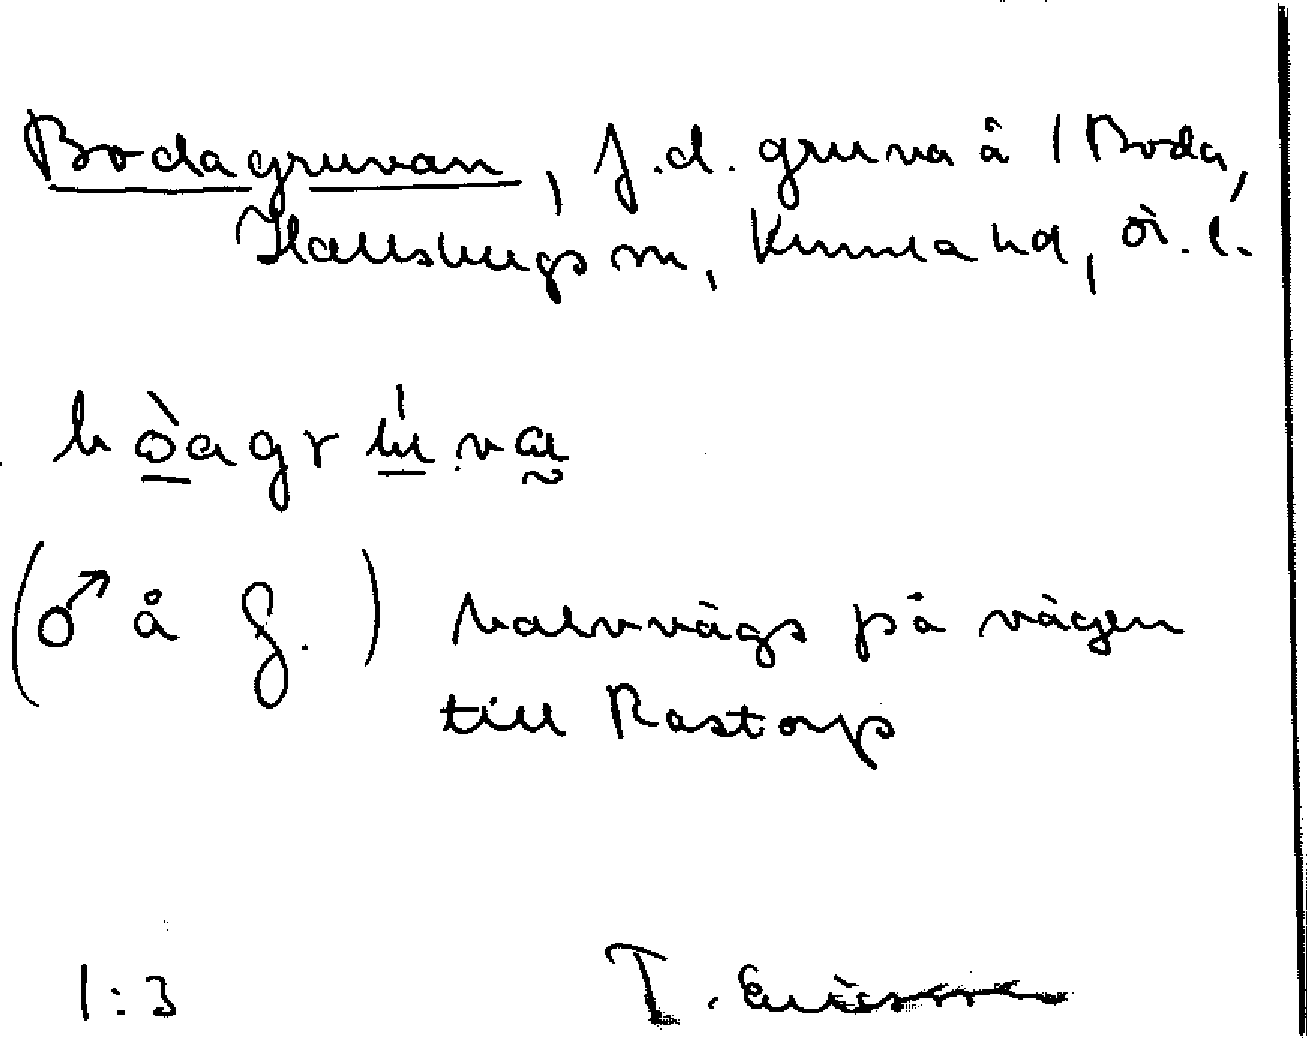 Bodagruvan, f.d. gruva å 1 Boda,
Hallsbergs sn, Kumla hd, Ö.l.
bòagrúva
(♂ å g.) halvvägs på vägen
till Rastorp
1:3 T. Ericsson